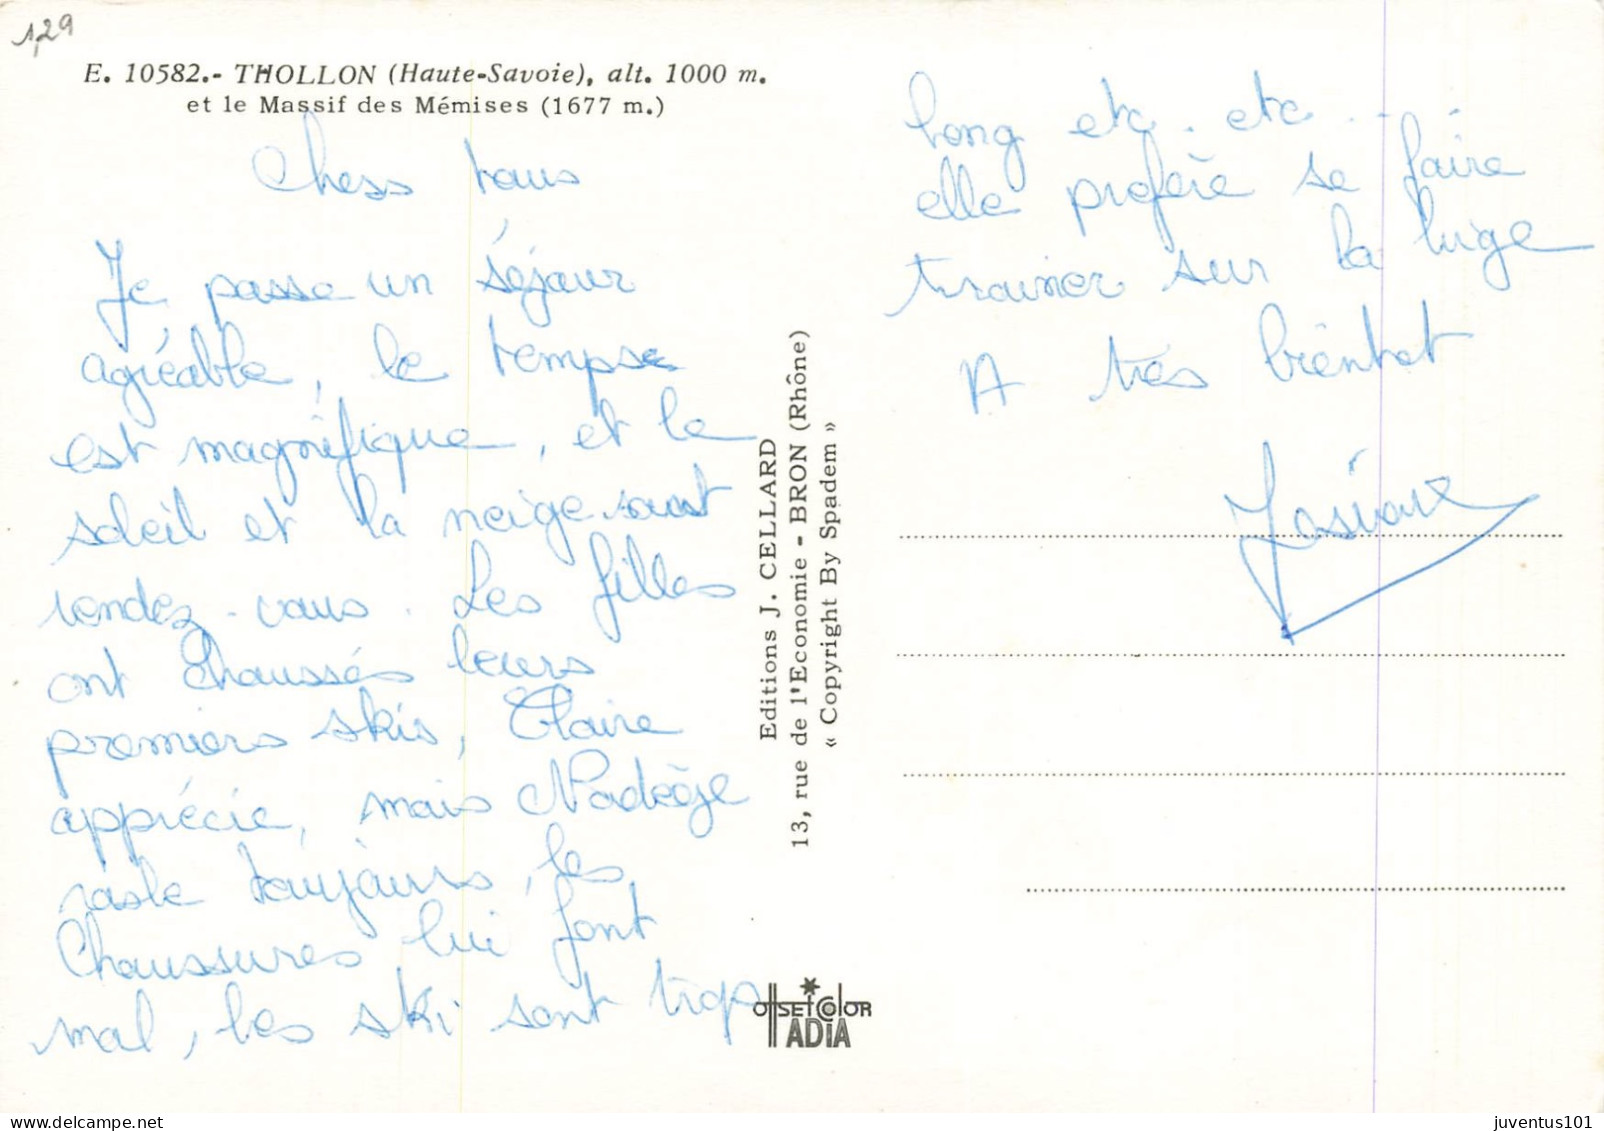 1,29
E. 10582.- THOLLON (Haute-Savoie), alt. 1000 m.
et le Massif des Mémises (1677 m.)
Chess tous
Je passe un séjour
agréable, le temps
est magnifique, et le
soleil et la neige sont
rendez-vous. Les filles
ont chaussés leurs
premiers skis, Claire
apprécie, mais Nadège
rasle toujours, les
Chaussures lui font
mal, les ski sont trop
long etc. etc...
elle préfère se faire
trainer sur la luge
A très bientot
Josiane
Editions J. CELLARD
13, rue de l'Economie - BRON (Rhône)
« Copyright By Spadem »
OFFSET COLOR
ADIA
juventus101